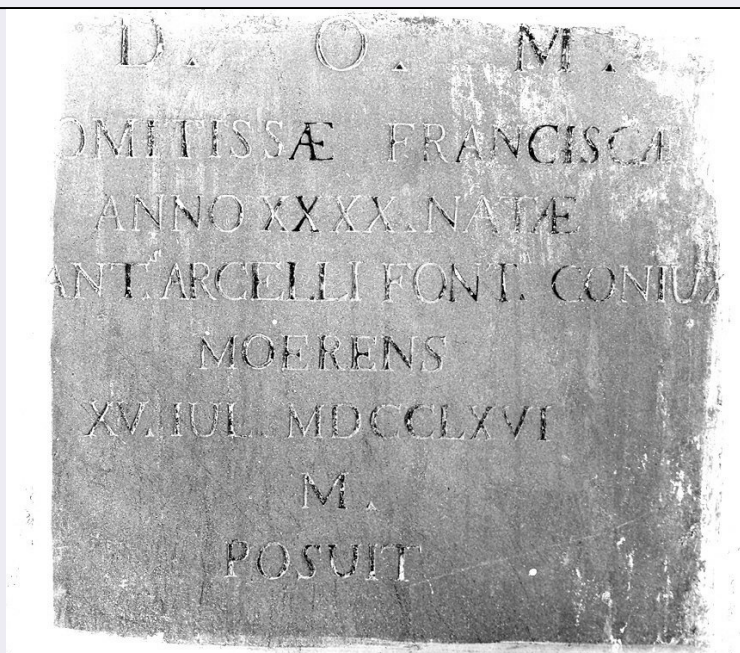 D. O. M.
OMITISSÆ FRANCISCÆ
ANNO XXXX. NATÆ
ANT.us ARCELLI FONT. CONIUX
MOERENS
XV. IUL. MDCCLXVI
M.
POSUIT